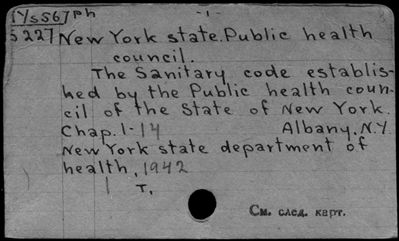 Ph -1-
5227 New York state. Public health
council.
The Sanitary code establis-
hed by the Public health coun-
cil of the State of New York.
Chap. 1-14 Albany. N.Y.
New York state department of
health, 1942
1 T.
См. след. карт.